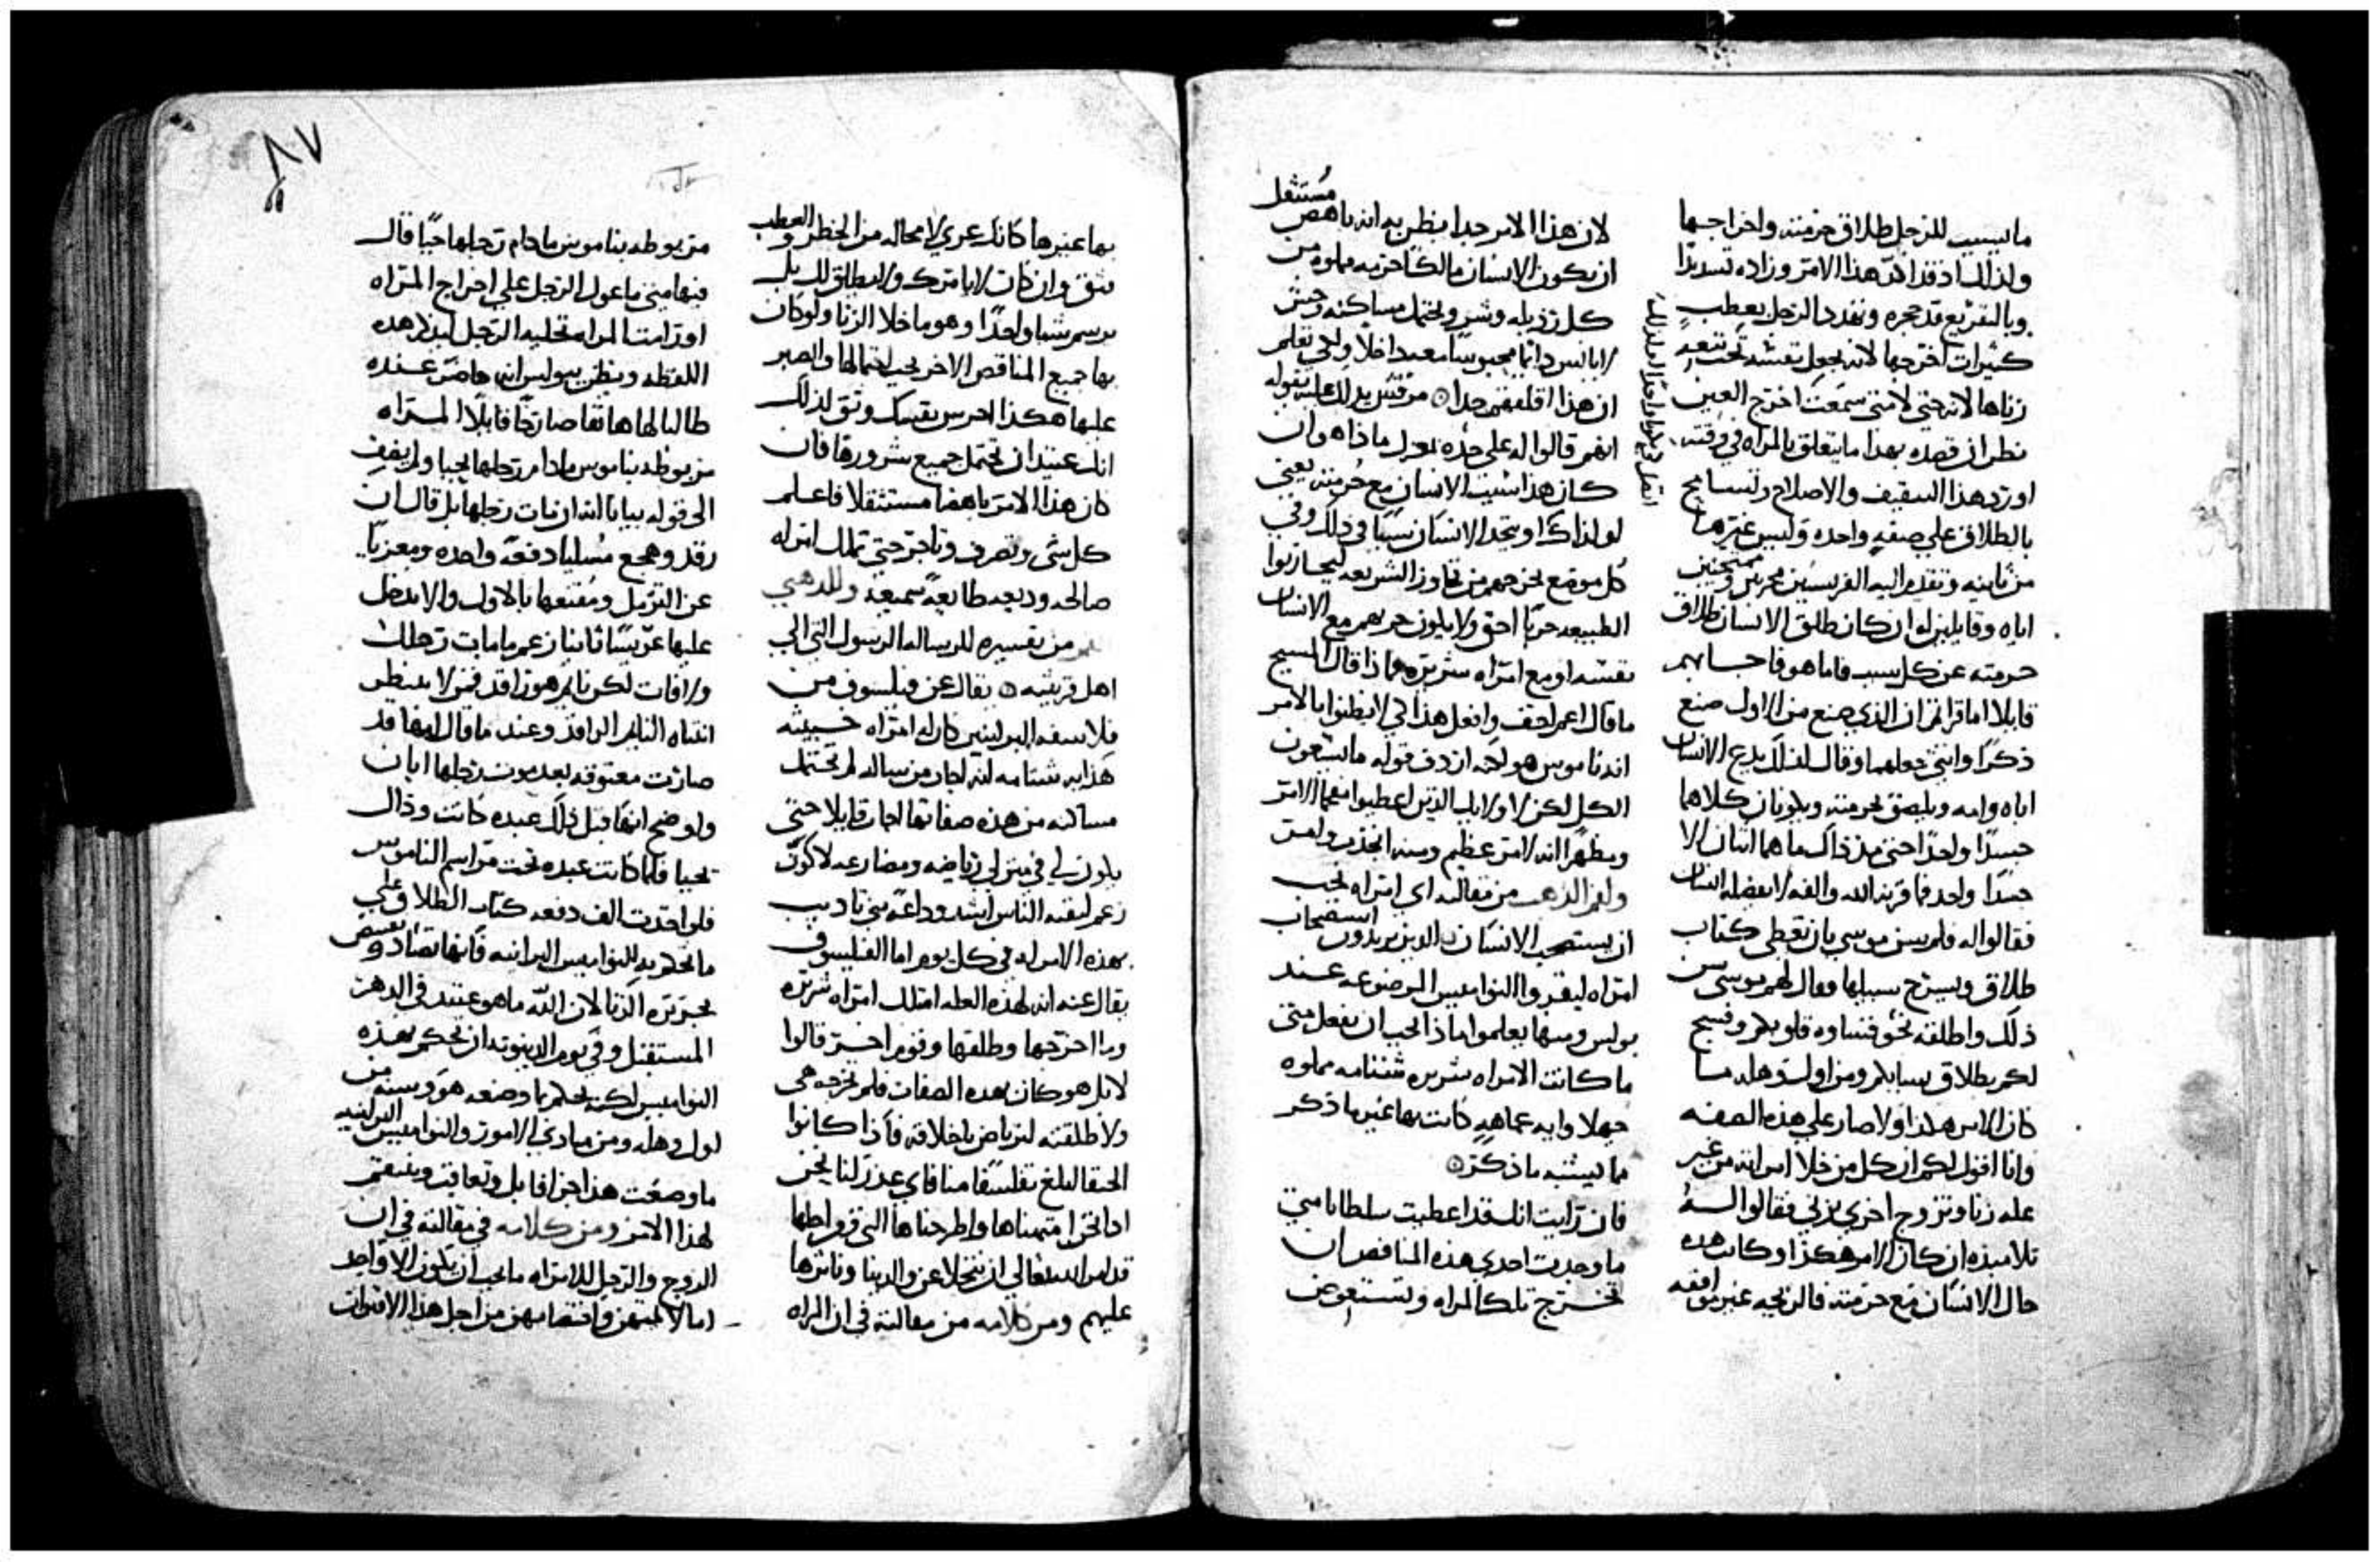 ما يسبب للرجل طلاق حرمته واخراجها
ولذلك اذ قد اكد هذا الامر وزاده تسديدًا
وبالتقريع قد حجره وتهدد الرجل بعطب
كثير ان اخرجها لانه يجعل نفسه تحت تبعة
زناها لانه حتى لا متى سمعت اخرج العين
تظن ان قصده بهذا ما يتعلق بالمراه في وقته
اورد هذا التثقيف والاصلاح وتسامح
بالطلاق على صفة واحده وليس غيرها
من ثانيه وتقدم اليه الفريسيين مجربين وممتحنين
اياه وقايلين له ان كان طلق الانسان طلاق
حرمته عن كل سبب فاما هو فاجابهم
قايلا اما قراتم ان الذي صنع من الاول صنع
ذكرًا وانثى جعلهما وقال لذلك يدع الانسان
اباه وامه ويلصق بحرمته ويكونان كلاهما
جسدًا واحدًا حتى مذ ذاك ما هما اثنان الا
جسدًا واحد فما قرنه الله والفه لا يفصله انسان
فقالوا له فلم سن موسى بان تعطى كتاب
طلاق ويسرح سبيلها فقال لهم موسى سن
ذلك واطلقه نحو قساوه قلوبكم وفسح
لكم بطلاق نسايكم ومن اول وهله ما
كان الامر هكذا ولا صار على هذه الصفه
وانا اقول لكم ان كل من خلا امراته من غير
عله زنا وتزوج اخرى يزني فقالوا له
تلاميذه ان كان الامر هكذا وكانت هذه
حال الانسان مع حرمته فالزيجه غير موافقه
لان هذا الامر جدا يظن به انه باهض مستثقل
ان يكون الانسان مالكًا حرمه مملوه من
كل رذيله وشر ويحتمل مساكنه وحش
لا يانس دايمًا محبوسًا معه داخلا ولكي تعلم
ان هذا اقلقهم جدا مرقس يدلك عليه بقوله
انهم قالوا له على حده
كان هذا سبب الانسان مع حرمته يعني
لو لذاك او يتحد الانسان سببا في ذلك وفي
كل موضع يخرجهم من تجاوز الشريعه ليحاربوا
الطبيعه حربًا احق ولا يكون حربهم مع الانسان
نفسه او مع امراه شريره فماذا قال المسيح
ما قال اعم اخفف وافعل هذا لكي لا يظنوا بالامر
انه ناموس هو لكنه اردف قوله ما يسعون
الكل لكن اولايك الذين اعطيوا مفهمًا الامر
ومظهرًا انه لامر عظيم
من مقالته اي امراه يجب
ان يستصحب الانسان الذين يريدون استصحاب
امراه ليقروا النواميس الموضوعه عند
بولس ومنها يعلموا ماذا يجب ان يفعل متى
ما كانت الامراه شريره شتامه مملوه
جهلا وايه عماهةٍ كانت بها غير ما ذكر
مما يشبه ما ذكر
فان رايت انك قد اعطيت سلطانا متى
ما وجدت احدى هذه المناقص ان
تخرج تلك المراه وتستعوض
بها غيرها كانك عري لا محاله من الخطر والعطب
فثق وان كان لا يا مترك ولا يطلق لك بل
يرسم شيا واحدًا وهو ما خلا الزنا ولو كان
بها جميع المناقص الاخر يجب احتمالها والصبر
عليها هكذا احرس نفسك وتق لذلك
انك عتيد ان تحتمل جميع شرورها فان
كان هذا الامر باهضا مستثقلا فاعلم
كل شي وتصرف وتاجر حتى تملك امراه
صالحه وديعه طايعةً سميعه وللذهبي
من تفسيره للرساله الرسول التي الى
اهل قرنثيه يقال عن فيلسوف من
فلاسفه البرانيين كان له امراه خبيثه
هذايه شتامه انه اجاب من ساله لم تحتمل
مساكنه من هذه صفاتها اجاب قايلا حتى
يكون لي في منزلي رياضه ومصارعه لاكون
زعم لبقيه الناس اشد وداعةً متي تاديب
بهذه الامراه في كل يوم اما الفيلسوف
يقال عنه انه لهذه العله امتلك امراه شريره
وما اخرجها وطلقها وقوم اخر قالوا
لا بل هو كان بهذه الصفات فلم تخرجه هي
ولا طلقته لترياض باخلاقه فاذا كانوا
الحنفا ابلغ تفلسفًا منا فاي عذر لنا نحن
اذا نحن امتهناها واطرحناها التي فرايطها
قد امر الله تعالى ان نتخلا عن والدينا ونابرها
عليهم ومن كلامه من مقالته في ان المراه
مربوطه بناموس ما دام رجلها حيًا قال
فيها متى ما عول الرجل على اخراج المراه
او رامت المراه تخليه الرجل ليذكر هذه
اللفظه ويظن ببولس انه حاضرً عنده
طالبا لها هاتفا صارخًا قايلًا المراه
مربوطه بناموس مادام رجلها يحيا ولم يقف
الى قوله بيانا انه ان مات رجلها بل قال ان
رقد وهجع مُسليا دفعه واحده ومعزيًا
عن الترمل ومُقنعها بالاول والا يدخل
عليها عريسًا ثانيا زعم ما مات رجلك
ولا فات لكن نايم هو راقد فمن لا ينتظر
انتباه النايم الراقد وعند ما قال انها قد
صارت معتوقه بعد موت رجلها ابان
واوضح انها قبل ذلك عبده كانت وذاك
يحيا فلما كانت عبده تحت مراسم الناموس
فلو اخذت الف دفعه كتاب الطلاق على
ما تحكم به النواميس البرانيه فانها تضاد ويقبض
بجريره الزنا لان الله ما هو عتيد في الدهر
المستقبل وفي يوم الدينونه ان يحكم بهذه
النواميس لكنه يحكم بما وضعه هو وسنه من
اول وهله ومن مبادي الامور والنواميس البرانيه
ما وضعت هذا جزافا بل وتعاقب وينتقم
لهذا الامر ومن كلامه في مقالته في ان
الزوج والرجل للامراه ما يجب ان يكون الا واحد
اما لامتهن وافتضاحهن من اجل هذا الاقوات